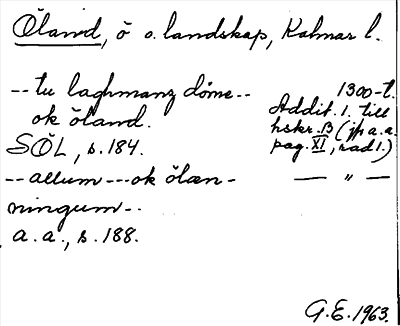 Öland, ö o. landskap, Kalmar l.
-- tu laghmanz döme --
ok öland.
SÖL, s. 184.
1300-t.
Addit. 1. till
hskr. B (jfr a.a.
pag. XI, rad 1.)
-- allum --- ok ölæn-
ningum --
a. a., s. 188.
— " —
G.E. 1963.